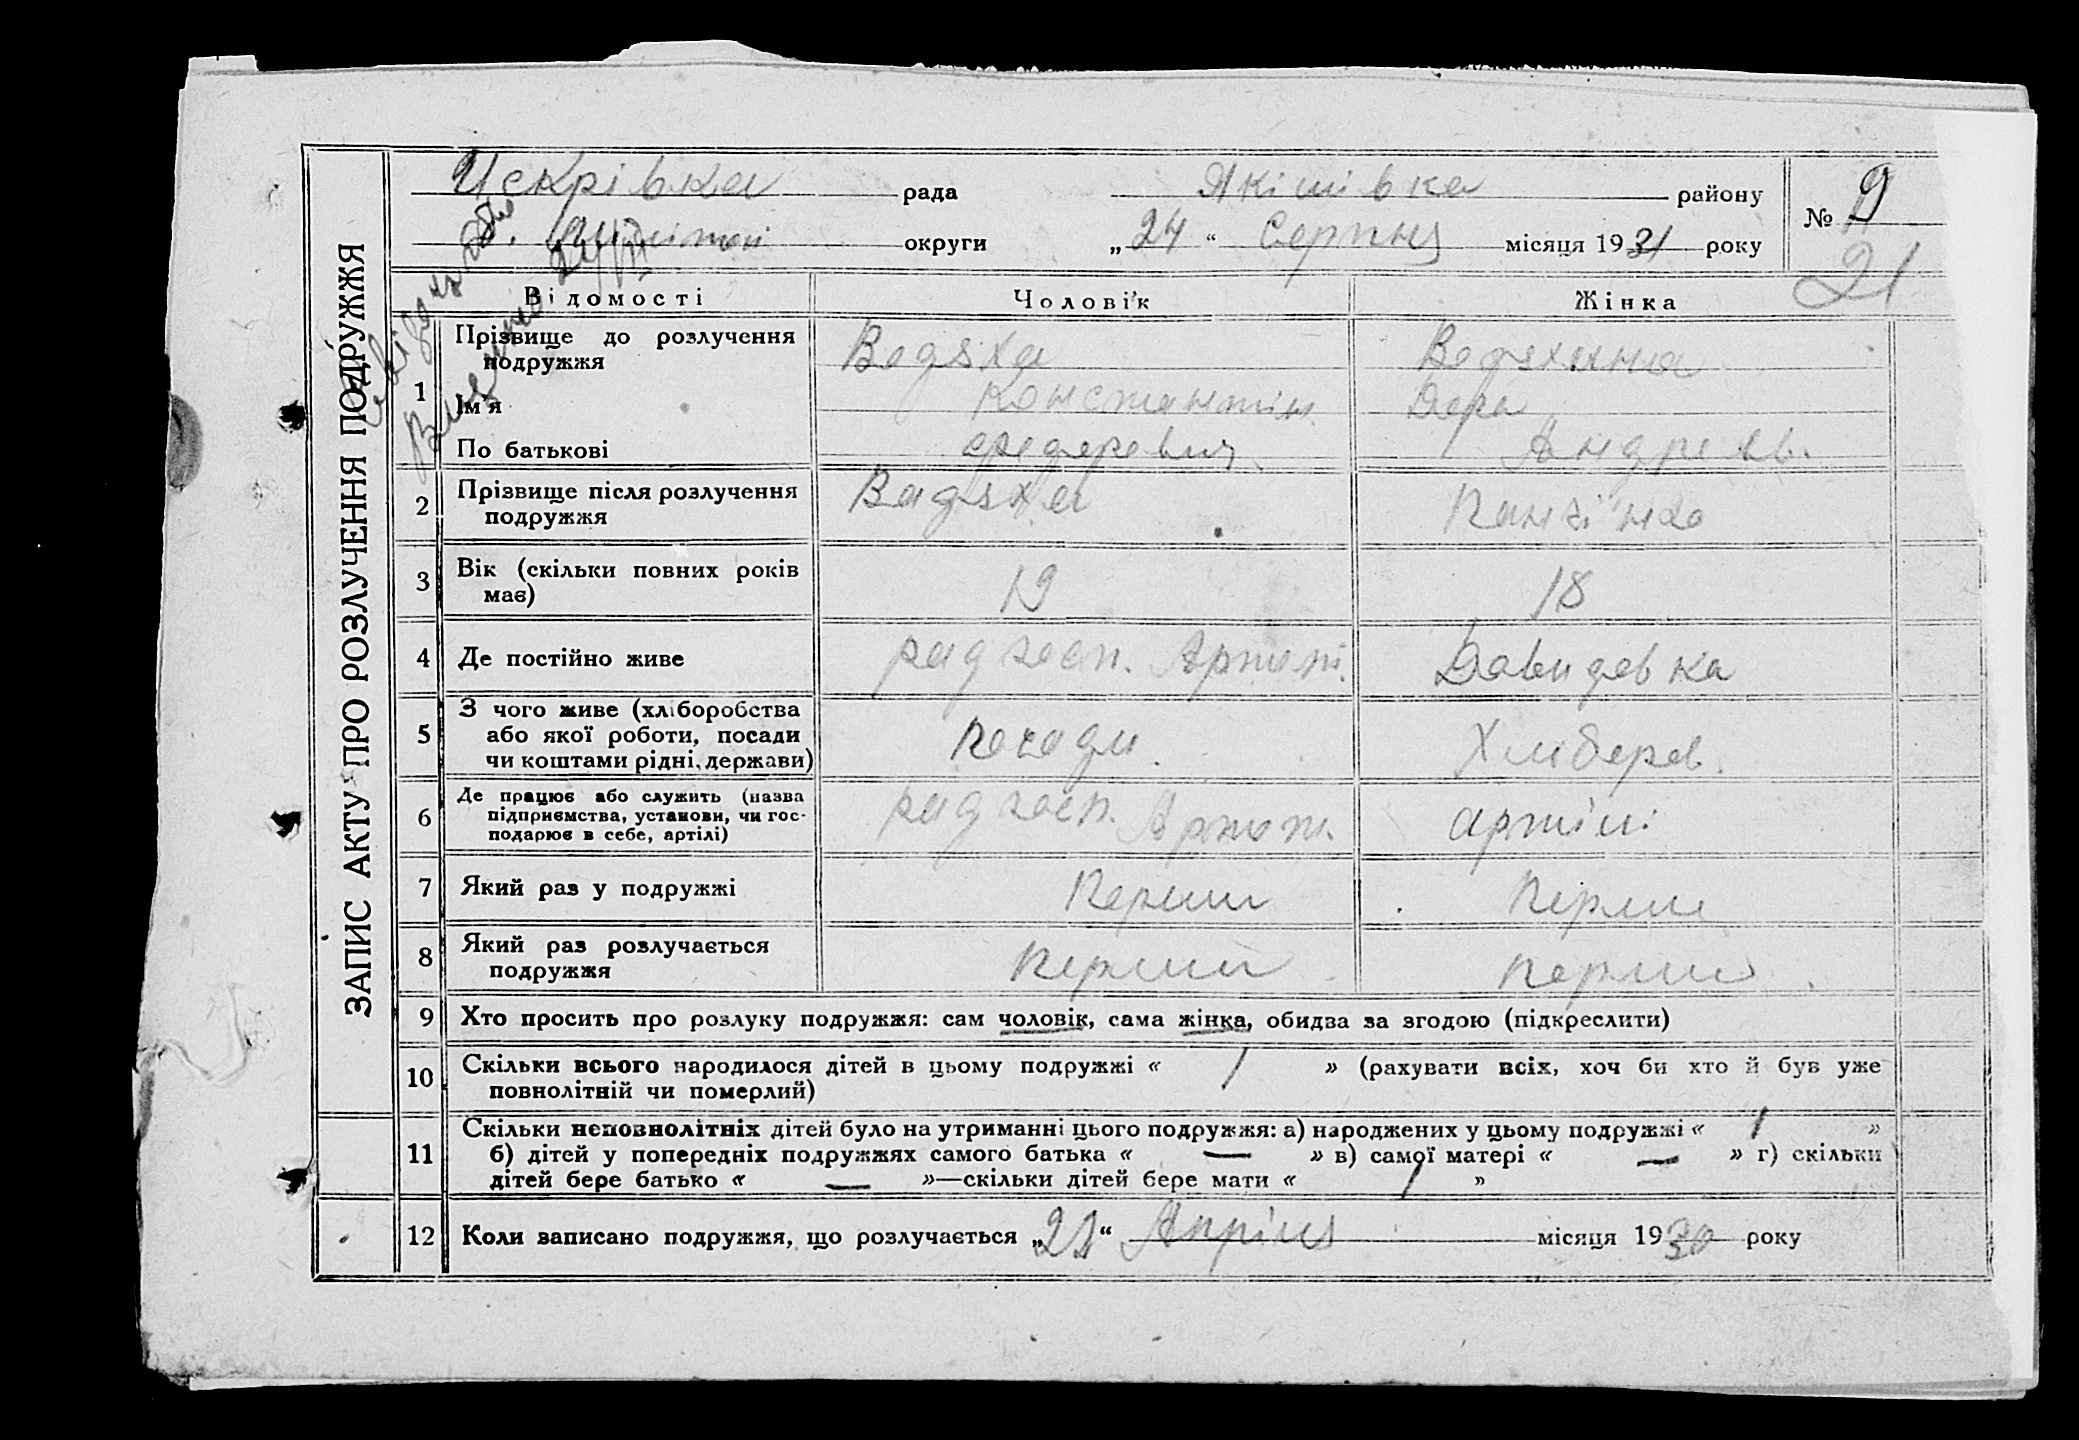 ЗАПИС АКТУ ПРО РОЗЛУЧЕННЯ ПОДРУЖЖЯ
Искрівка рада Якімівка району
округи „ 24 “ Серпня місяця 1931 року
№ 9
21
Відомості Чоловік Жінка
1 Прізвище до розлучення
подружжя
Імя Константін Вера
По батькові Федорович Андреев.
2 Прізвище після розлучення
подружжя
3 Вік (скільки повних років 19 18
має)
4 Де постійно живе радгосп. Давидовка
5 З чого живе (хліборобства
або якої роботи, посади Посади Хлібороб.
чи коштами рідні, держави)
6 Де працює або служить (назва
підприємства, установи, чи гос- радгосп. артілі
подарює в себе, артілі)
7 Який раз у подружжі Перший Перший
8 Який раз розлучається
подружжя Перший Перший
9 Хто просить про розлуку подружжя: сам чоловік, сама жінка, обидва за згодою (підкреслити)
10 Скільки всього народилося дітей в цьому подружжі « 1 » (рахувати всіх, хоч би хто й був уже
повнолітній чи померлий)
11 Скільки неповнолітніх дітей було на утриманні цього подружжя: а) народжених у цьому подружжі « 1 »
б) дітей у попередніх подружжях самого батька « — » в) самої матері « — » г) скільки
дітей бере батько « — »—скільки дітей бере мати « 1 »
12 Коли записано подружжя, що розлучається „22“ Апріля місяця 1930 року